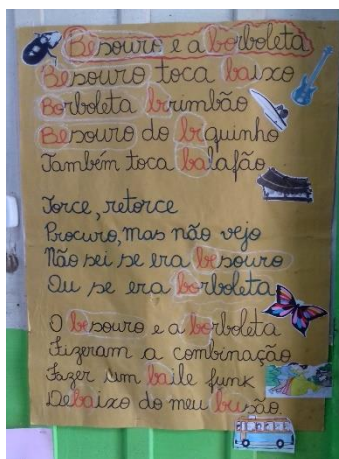 Besouro e a borboleta
Besouro toca baixo
Borboleta birimbão
Besouro do biquinho
Também toca balafão
Torce, retorce
Procuro, mas não vejo
Não sei se era besouro
Ou se era borboleta
O besouro e a borboleta
Fizeram a combinação
Fazer um baile funk
Debaixo do meu busão.